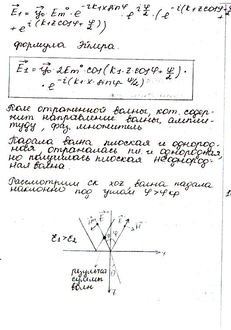 E⃗₁ = y⃗₀ E_m⁰ · e^(-ik₁x sinφ) · e^(iψ/2) · (e^(-i(k₁z cosφ + ψ/2)) +
+ e^(i(k₁z cosφ + ψ/2))
формула Эйлера.
E⃗₁ = y⃗₀ · 2E_m⁰ cos(k₁·z cosφ + ψ/2) ·
· e^(-i(k₁x · sinφ - ψ/2)
Поле отраженной волны, кот. содер-
жит направление волны, ампли-
туду, фаз. множитель
Падала волна плоская и однород-
ная отражалась пл. и однородная,
но получилась плоская неоднород-
ная волна.
Рассмотрим ск волна падала
наклонно под углом φ > φкр
ε₁ > ε₂
результат
суммы
волн